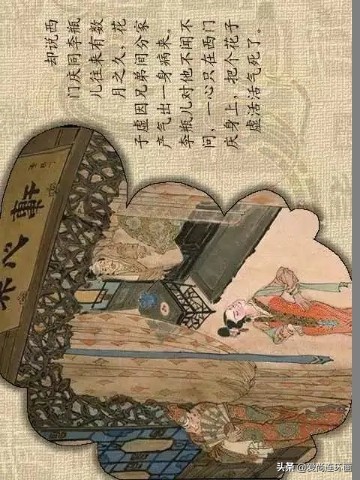 却说西
门庆同李瓶
儿往来有数
月之久，花
子虚因兄弟间分家
产气出一身病来，
李瓶儿对他不闻不
问，一心只在西门
庆身上，把个花子
虚活活气死了。
軒
头条 @爱尚连环画